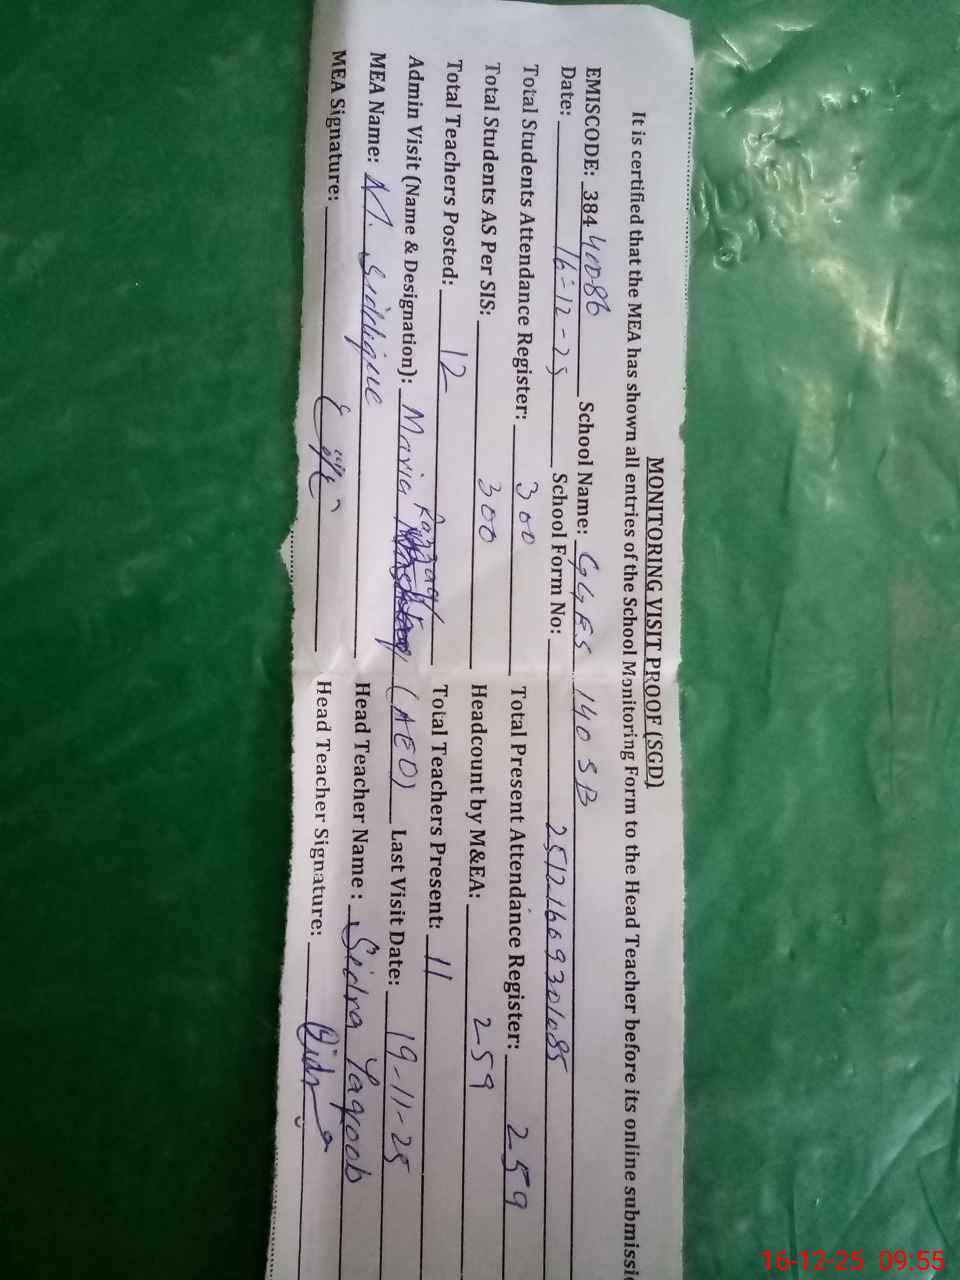 MONITORING VISIT PROOF (SGD)
It is certified that the MEA has shown all entries of the School Monitoring Form to the Head Teacher before its online submissi
EMISCODE: 38440086 School Name: GGES 140 SB
Date: 16-12-25 School Form No: 2512160930
Total Students Attendance Register: 300 Total Present Attendance Register: 259
Total Students AS Per SIS: 300 Headcount by M&EA: 259
Total Teachers Posted: 12 Total Teachers Present: 11
Admin Visit (Name & Designation): Maria Razzaq (AEO) Last Visit Date: 19-11-25
MEA Name: M. Siddique Head Teacher Name : Sidra Yaqoob
MEA Signature: Head Teacher Signature: Sidra
16-12-25 09:55